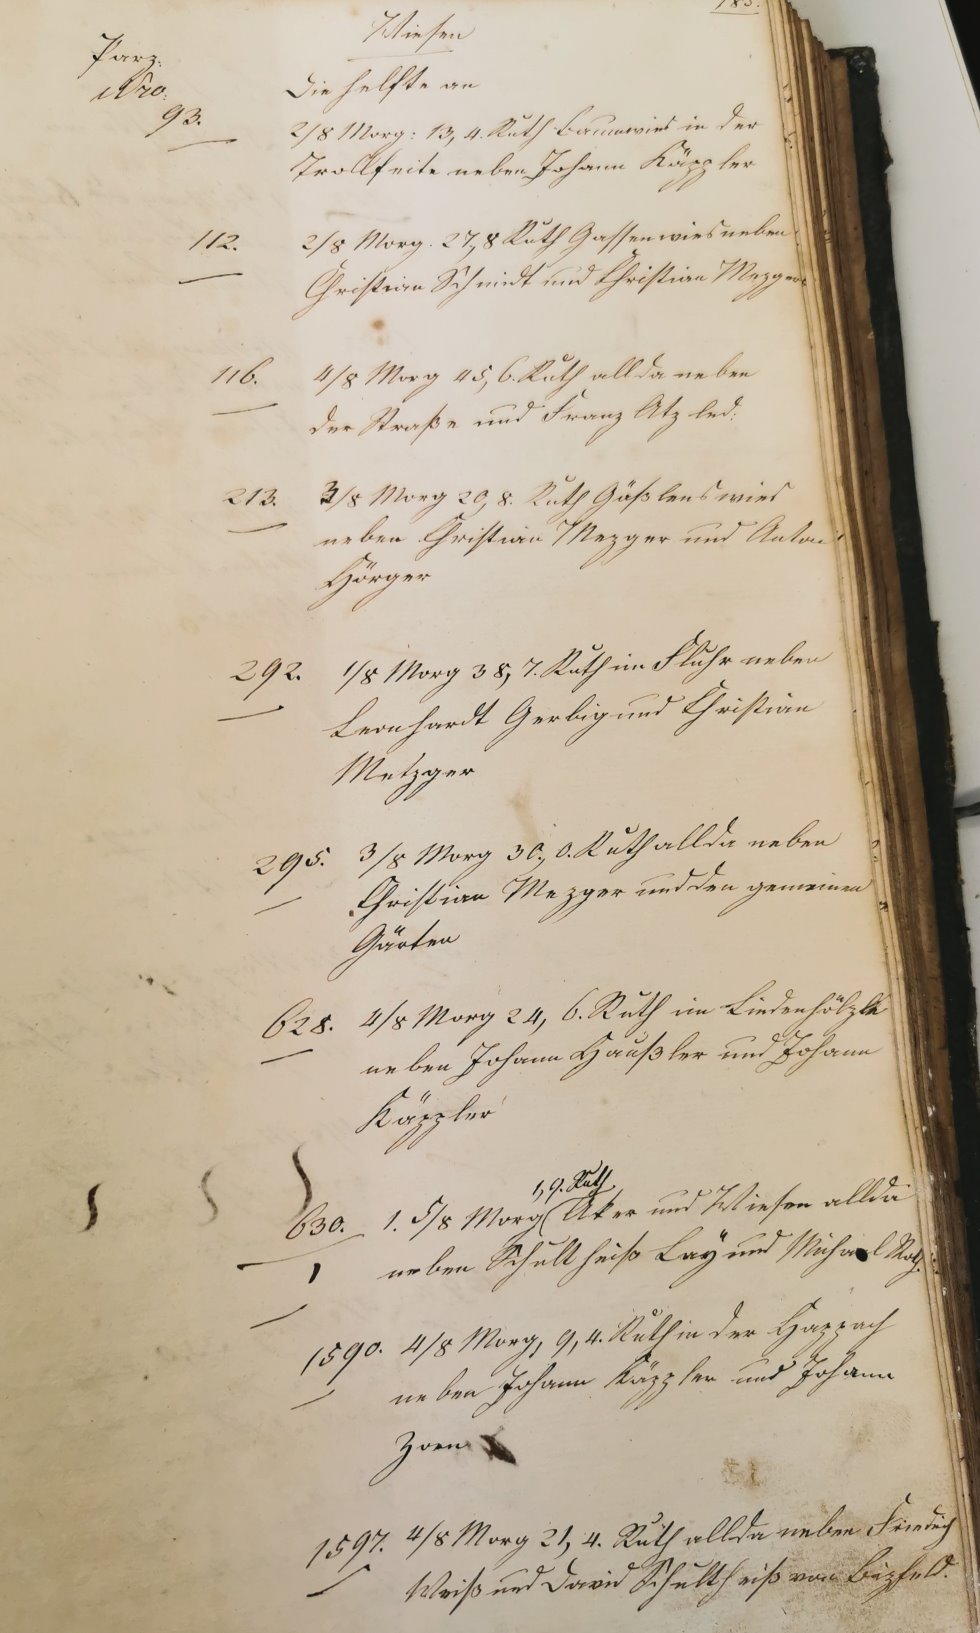 185.
Wiesen
Parz:
Nro.
Die helfte an
93. 2/8 Morg: 13, 4. Ruth Baumwies in der
Trollseite neben Johann Käppler
112. 2/8 Morg. 27,8 Ruth Gassenwies neben
Christian Schmidt und Christian Mezger
116. 4/8 Morg 45, 6. Ruth allda neben
der Straße und Franz Atz led:
213. 3/8 Morg 20, 8. Ruth Gäßlenswies
neben Christian Mezger und Anton
Hörger
292. 1/8 Morg 38, 7. Ruth im Fluhr neben
Leonhardt Gerbig und Christian
Metzger
295. 3/8 Morg 30, 0. Ruth allda neben
Christian Mezger und den gemeinen
Gärten
628. 4/8 Morg 24, 6. Ruth im Lindenhölzle
neben Johann Haußler und Johann
Käppler
1,9. Ruth
630. 1. 5/8 Morg ( Aker und Wiesen allda
neben Schultheiß Lay und Michael Roth.
1590. 4/8 Morg, 9, 4. Ruth in der Happach
neben Johann Käppler und Johann
Zorn
1597. 4/8 Morg 21, 4. Ruth allda neben Friedrich
Weiß und David Schultheiß von Bizfeld.